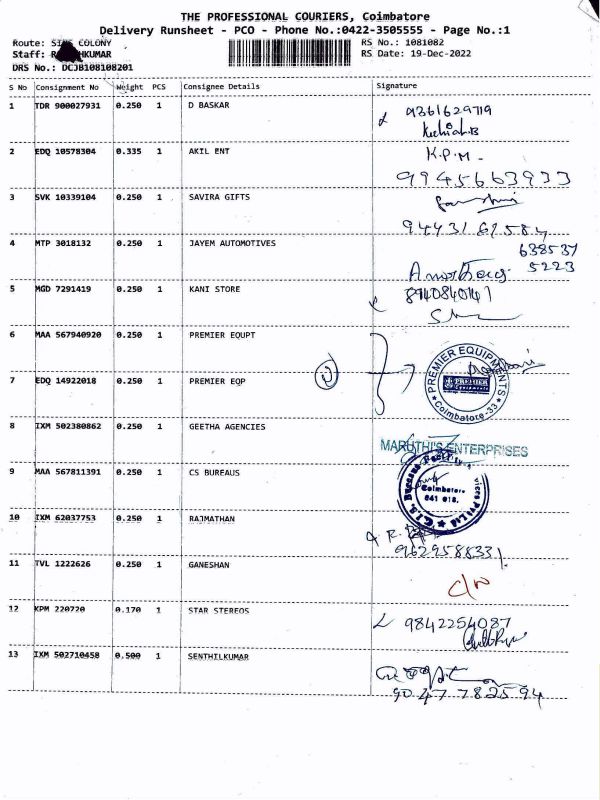 THE PROFESSIONAL COURIERS, Coimbatore
Delivery Runsheet - PCO - Phone No.:0422-3505555 - Page No.:1
Route: COLONY
Staff: KUMAR
DRS No.: DCJB108108201
RS No.: 1081082
RS Date: 19-Dec-2022
S No Consignment No Weight PCS Consignee Details Signature
1 TDR 900027931 0.250 1 D BASKAR 9361629719
2 EDQ 10578304 0.335 1 AKIL ENT K.P.M -
9945663933
3 SVK 10339104 0.250 1 SAVIRA GIFTS
9443167584
4 MTP 3018132 0.250 1 JAYEM AUTOMOTIVES 638537
5223
5 MGD 7291419 0.250 1 KANI STORE 8940840141
6 MAA 567940920 0.250 1 PREMIER EQUPT
PREMIER EQUIPMENTS
PREMIER
Coimbatore-33
7 EDQ 14922018 0.250 1 PREMIER EQP
8 IXM 502380862 0.250 1 GEETHA AGENCIES
MARUTHI'S ENTERPRISES
9 MAA 567811391 0.250 1 CS BUREAUS
Coimbatore
641 018.
10 IXM 62037753 0.250 1 RAJMATHAN
9629588331
11 TVL 1222626 0.250 1 GANESHAN
12 KPM 220720 0.170 1 STAR STEREOS 9842254087
13 IXM 502710458 0.500 1 SENTHILKUMAR
9047782594